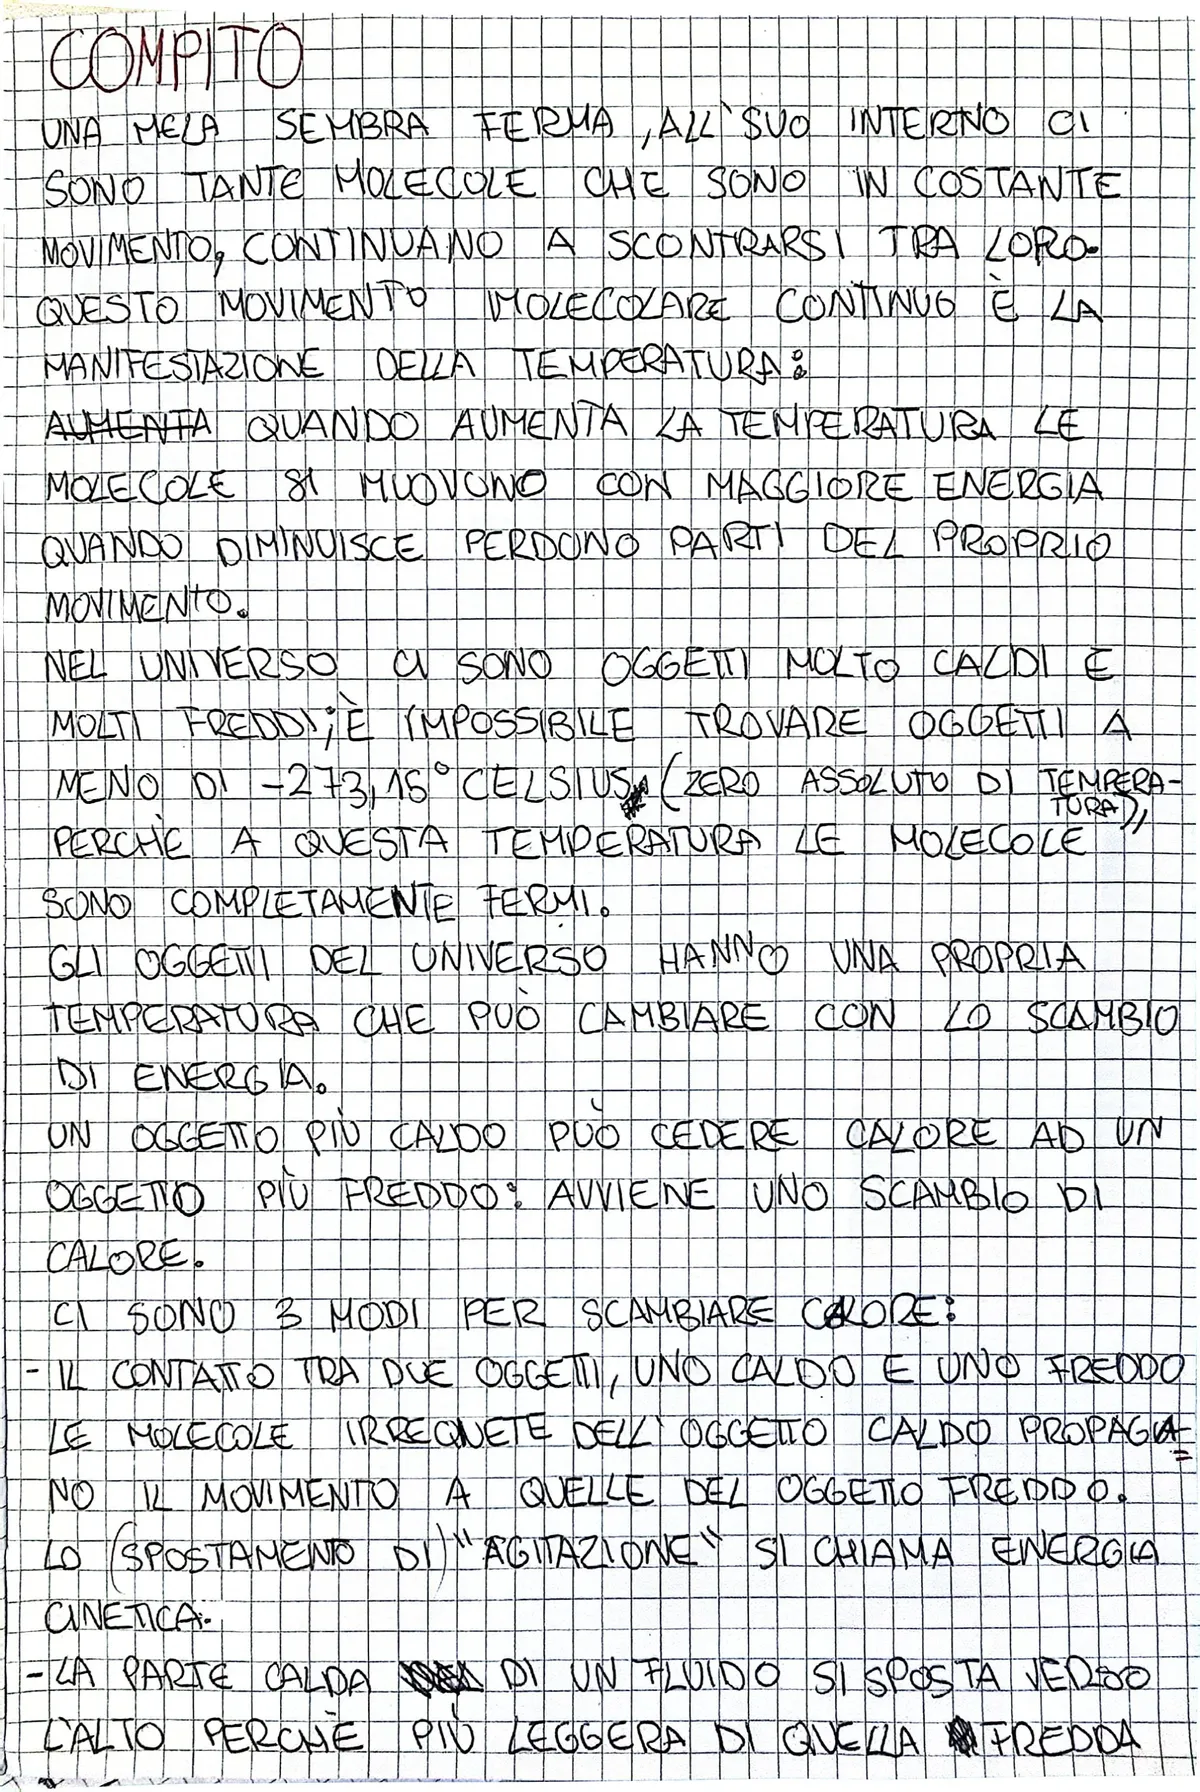 COMPITO
UNA MELA SEMBRA FERMA, ALL'SUO INTERNO CI
SONO TANTE MOLECOLE CHE SONO IN COSTANTE
MOVIMENTO, CONTINUANO A SCONTRARSI TRA LORO.
QUESTO MOVIMENTO MOLECOLARE CONTINUO È LA
MANIFESTAZIONE DELLA TEMPERATURA:
AUMENTA QUANDO AUMENTA LA TEMPERATURA LE
MOLECOLE SI MUOVONO CON MAGGIORE ENERGIA
QUANDO DIMINUISCE PERDONO PARTI DEL PROPRIO
MOVIMENTO.
NEL UNIVERSO CI SONO OGGETTI MOLTO CALDI E
MOLTI FREDDI; È IMPOSSIBILE TROVARE OGGETTI A
MENO DI -273,15° CELSIUS (ZERO ASSOLUTO DI TEMPERA-
TURA),
PERCHÈ A QUESTA TEMPERATURA LE MOLECOLE
SONO COMPLETAMENTE FERMI.
GLI OGGETTI DEL UNIVERSO HANNO UNA PROPRIA
TEMPERATURA CHE PUÒ CAMBIARE CON LO SCAMBIO
DI ENERGIA.
UN OGGETTO PIÙ CALDO PUÒ CEDERE CALORE AD UN
OGGETTO PIÙ FREDDO: AVVIENE UNO SCAMBIO DI
CALORE.
CI SONO 3 MODI PER SCAMBIARE CALORE:
- IL CONTATTO TRA DUE OGGETTI, UNO CALDO E UNO FREDDO
LE MOLECOLE IRREQUETE DELL'OGGETTO CALDO PROPAGA=
NO IL MOVIMENTO A QUELLE DEL OGGETTO FREDDO.
LO (SPOSTAMENTO DI) "AGITAZIONE" SI CHIAMA ENERGIA
CINETICA.
- LA PARTE CALDA DI UN FLUIDO SI SPOSTA VERSO
L'ALTO PERCHÈ PIÙ LEGGERA DI QUELLA FREDDA